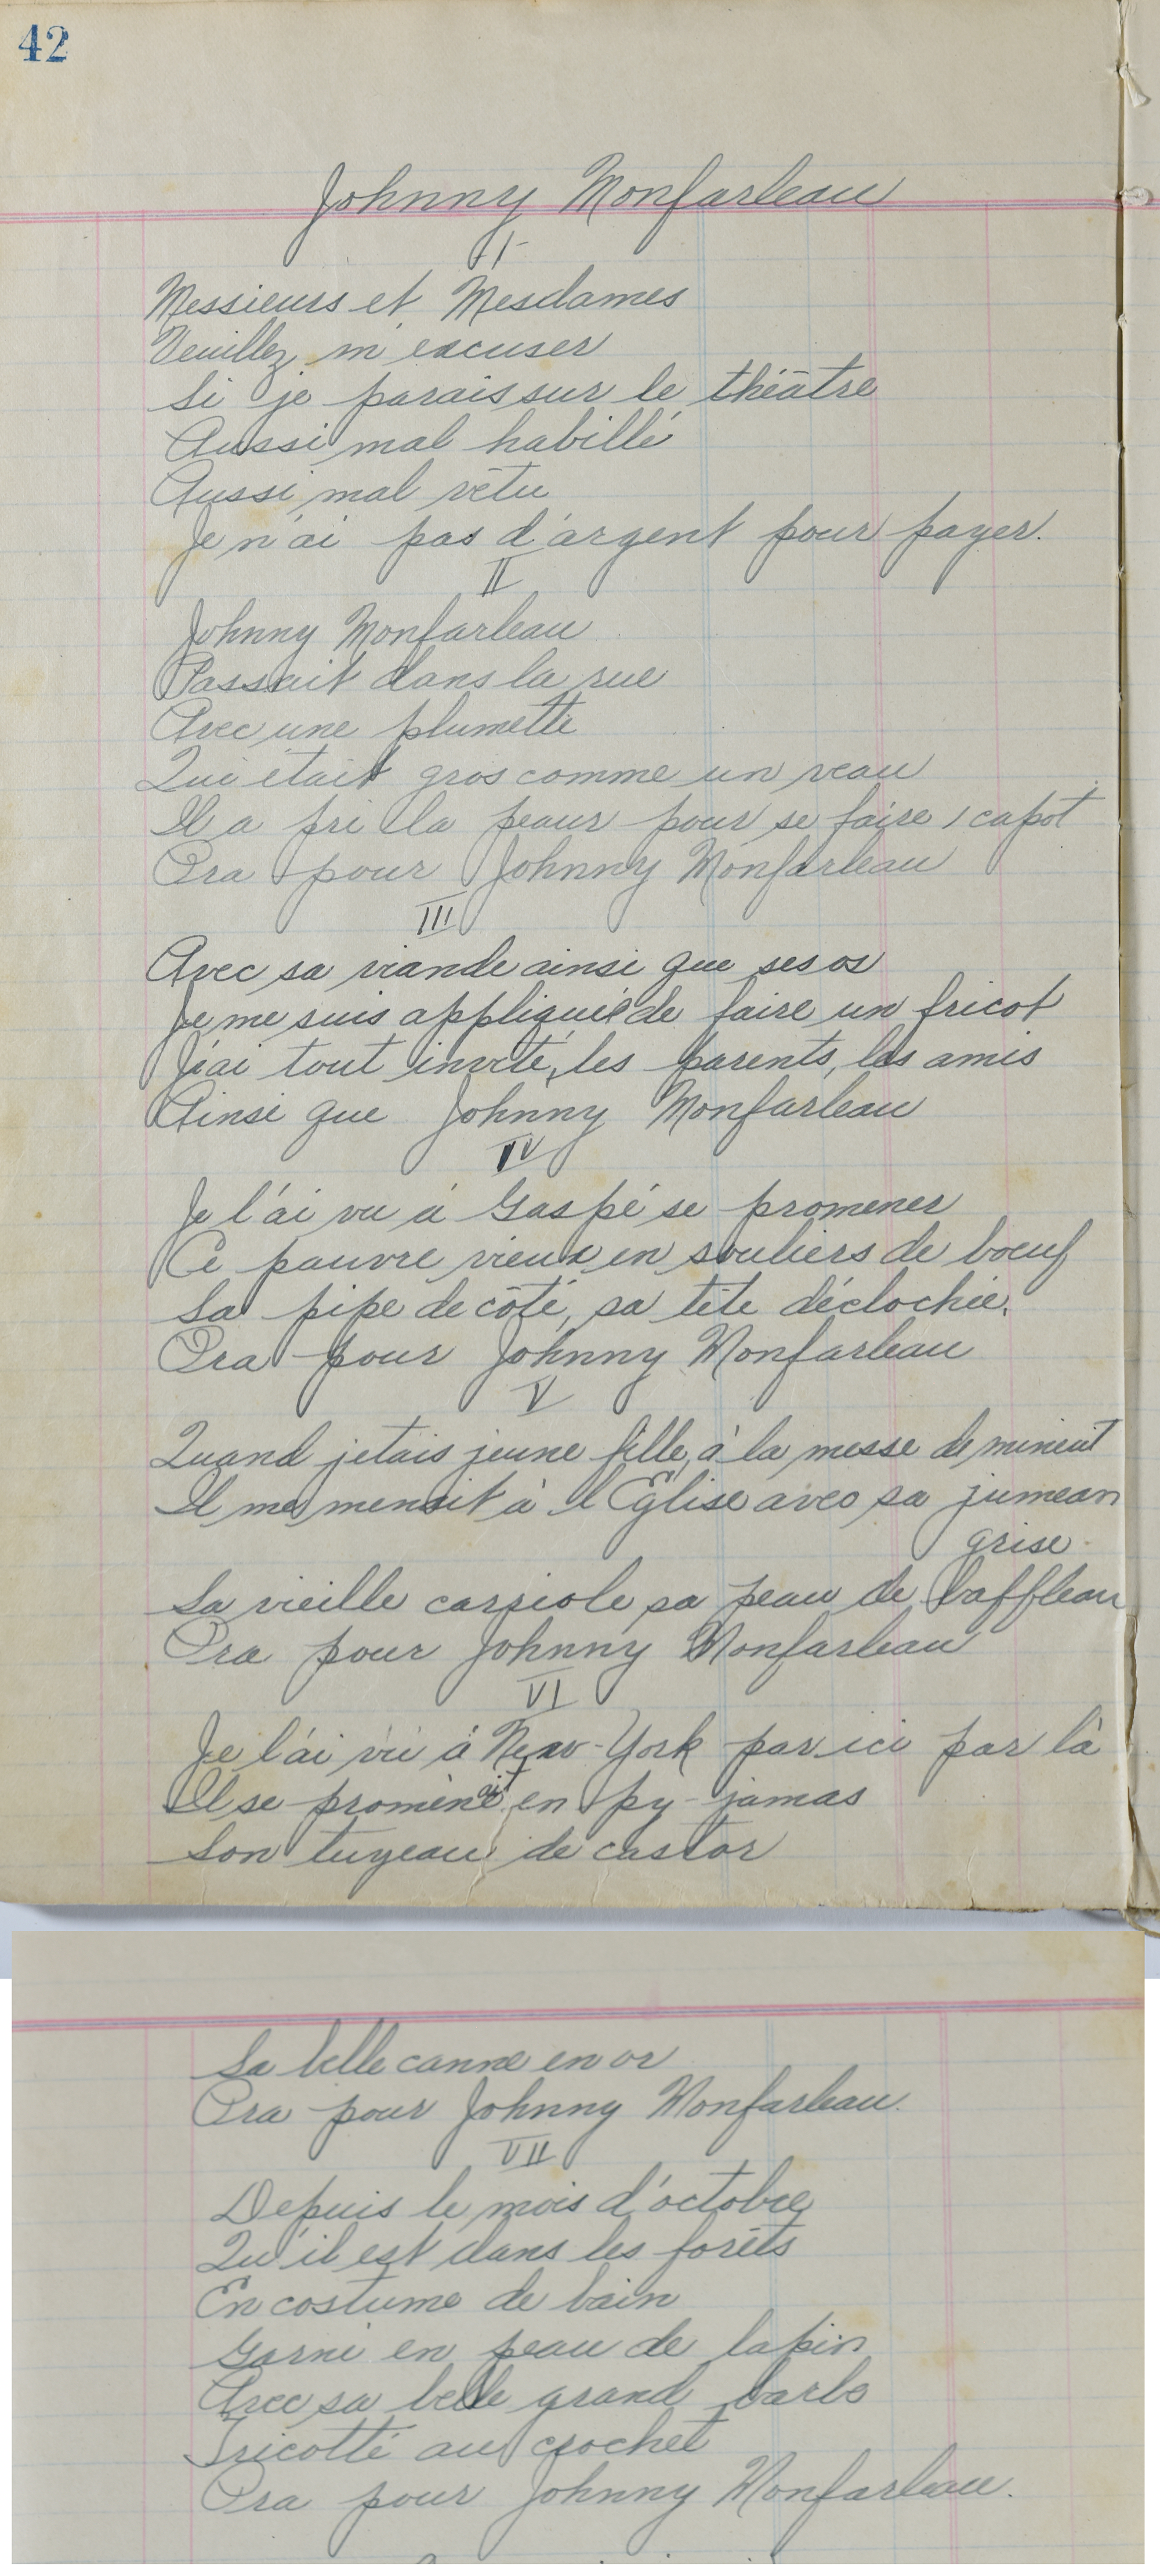 42
Johnny Monfarleau
I
Messieurs et Mesdames
Veuillez m'excuser
Si je parais sur le théâtre
Aussi mal habillé
Aussi mal vêtu
Je n'ai pas d'argent pour payer.
II
Johnny Monfarleau
Passait dans la rue
Avec une plumette
Qui était gros comme un veau
Il a pri la peau pour se faire 1 capot
Ora pour Johnny Monfarleau
III
Avec sa viande ainsi que ses os
Je me suis appliquée de faire un fricot
J'ai tout invité, les parents, les amis
Ainsi que Johnny Monfarleau
IV
Je l'ai vu à Gaspé se promener
Ce pauvre vieux en souliers de boeuf
Sa pipe de côté, sa tête déclochée.
Ora pour Johnny Monfarleau
V
Quand jetais jeune fille, à la messe de minuit
Il me menait à l'Eglise avec sa jumean
grise.
Sa vieille carriole sa peau de baffleau
Ora pour Johnny Monfarleau
VI
Je l'ai vu à New-York par ici par là
Il se promenait en py-jamas
Son tuyeau de castor
Sa belle canne en or
Ora pour Johnny Monfarleau.
VII
Depuis le mois d'octobre
Qu'il est dans les forêts
En costume de bain
Garni en peau de lapin
Avec sa belle grand barbe
Tricotté au crochet
Ora pour Johnny Monfarleau.